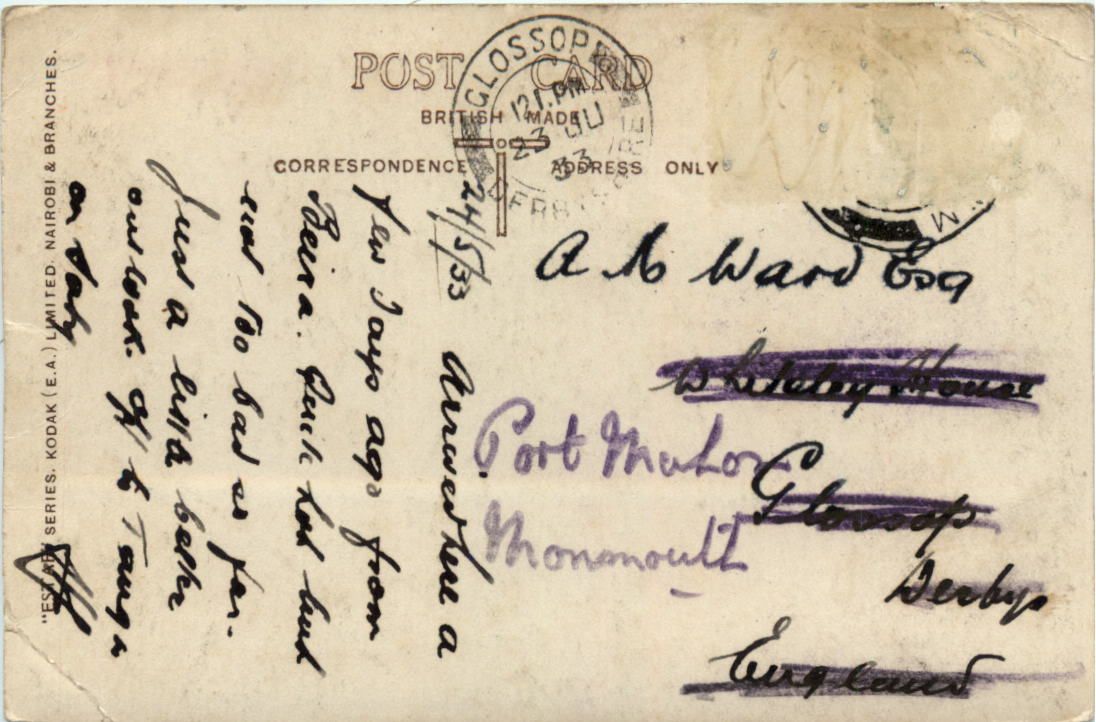 POST CARD
BRITISH MADE
CORRESPONDENCE ADDRESS ONLY
GLOSSOP
12.1 PM
23 JU
33
DERBYSHIRE
M
"ESTAR" SERIES. KODAK (E.A.) LIMITED. NAIROBI & BRANCHES.
24/5/33
Arrived here a
few days ago from
Beira. Quite hot but
not too bad so far.
Just a little better
outlook. Off to Tanga
on
A Ward Esq
House
Glossop
Derbys
England
Port
Monmouth